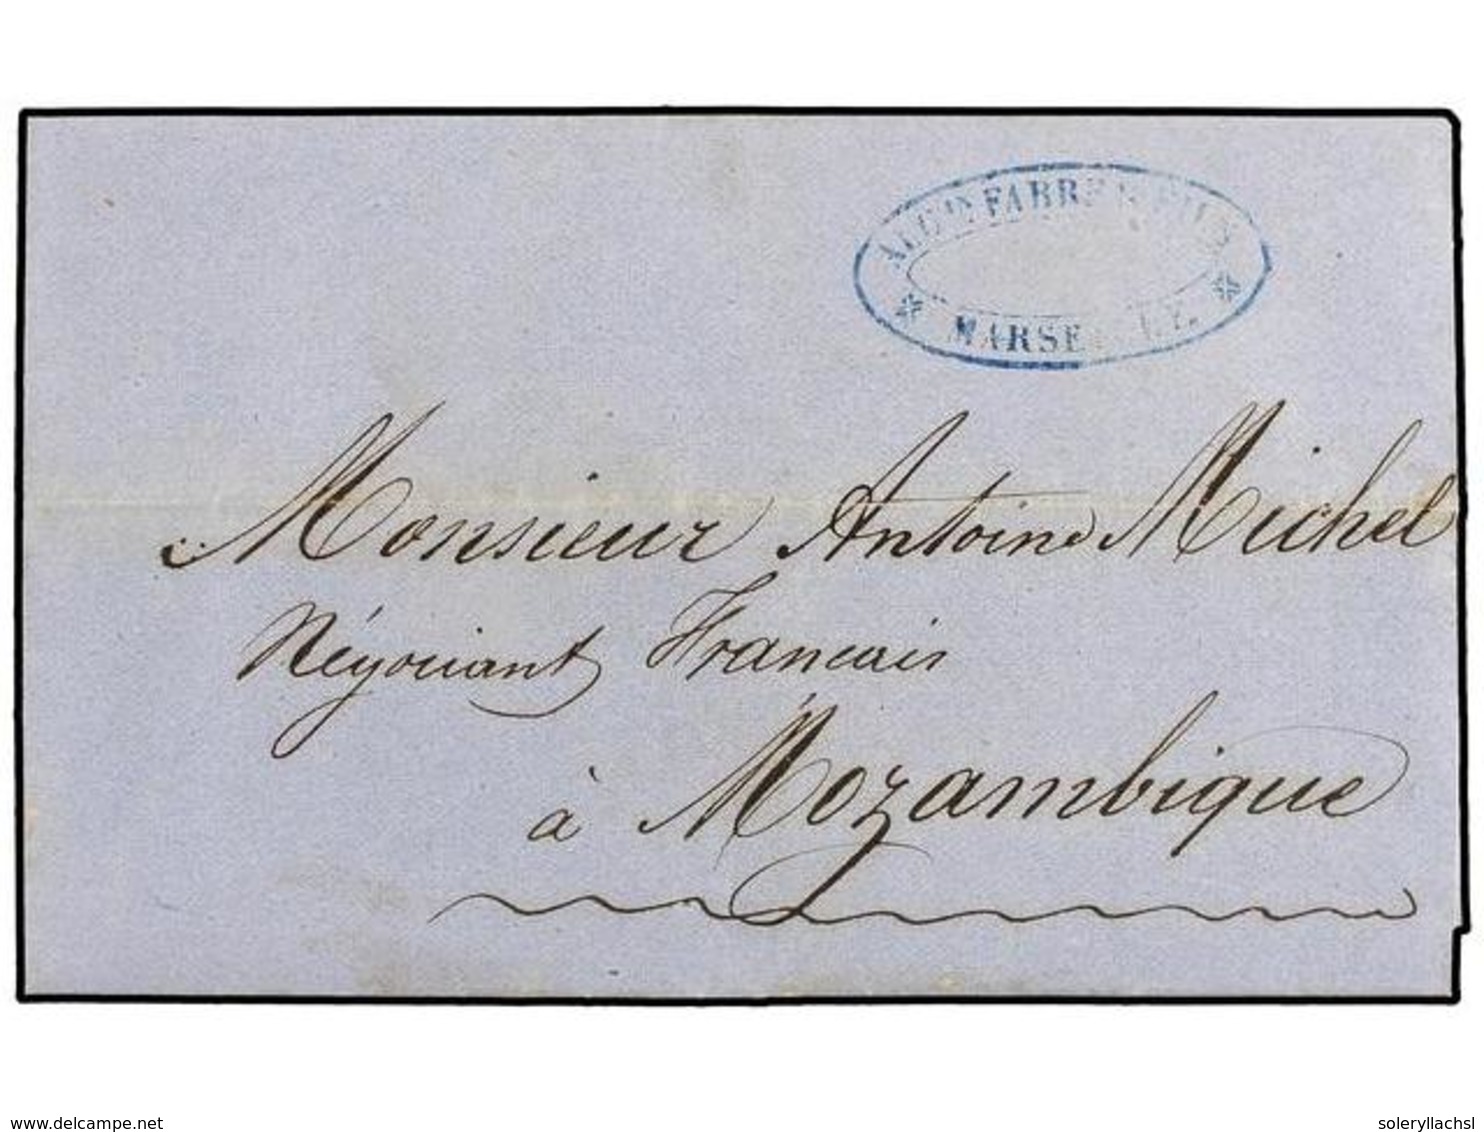 FABRE
MARSEILLE.
Monsieur Antoine Michel
Négociant Français
à Mozambique
www.delcampe.net
soleryllachsl